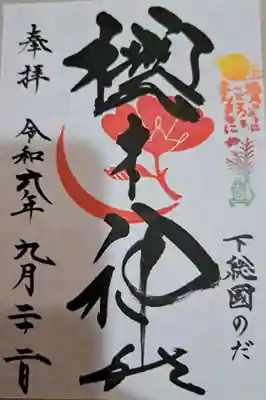 奉拝
櫻木神社
下総國のだ
令和六年九月二十二日